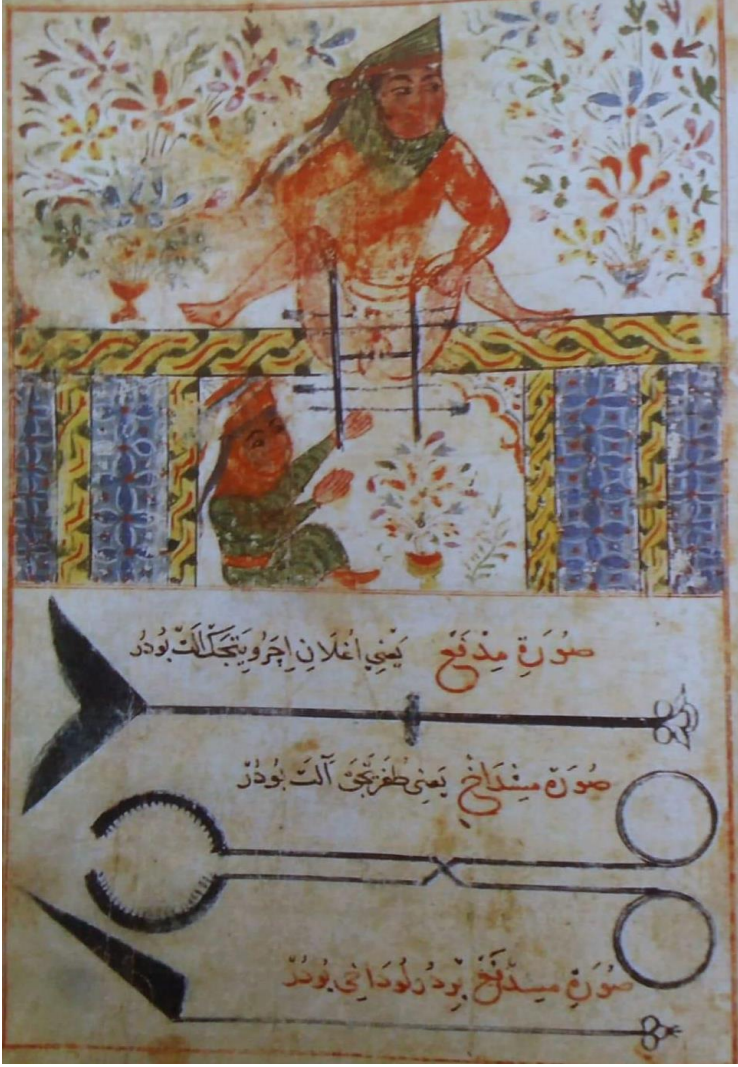 صُورَةِ مِدْفَعْ يَعْنِي اُغْلَانِ اِچَرُو يَتِجَكْ اَلَتْ بُودُرْ
صُورَةِ مِشْدَاخْ يَعْنِي طُغْرَيَجَقْ آلَتْ بُودُرْ
صُورَةِ مِشْدَخْ بِرْ دُرْلُو دَاخِي بُودُرْ